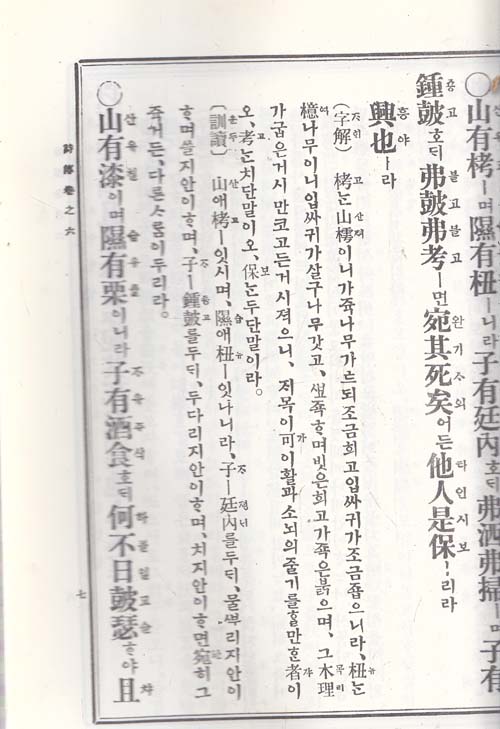 ○山有栲ㅣ며隰有杻ㅣ니라子有廷內호ᄃᆡ弗洒弗掃ㅣ며子有
鍾鼓호ᄃᆡ弗鼓弗考ㅣ면宛其死矣어든他人是保ㅣ리라
興也ㅣ라
(字解) 栲ᄂᆞᆫ山樗이니가쥭나무가ᄐᆞ되조금희고입싸귀가조금좁으니라、杻ᄂᆞᆫ
檍나무이니입싸귀가살구나무갓고、ᄲᅭ쥭ᄒᆞ며빗은희고가쥭은붉으며、그木理
가굽은거시만코고든거시져으니、저목이可이활과소뇌의줄기를ᄒᆞᆯ만ᄒᆞᆫ者이
오、考ᄂᆞᆫ치단말이오、保ᄂᆞᆫ두단말이라。
(訓讀) 山애栲ㅣ잇시며、隰애杻ㅣ잇나니라、子ㅣ廷內를두ᄃᆡ、물ᄲᅮ리지안이
ᄒᆞ며쓸지안이ᄒᆞ며、子ㅣ鍾鼓를두ᄃᆡ、두다리지안이ᄒᆞ며、치지안이ᄒᆞ면宛히그
죽거든、다른ᄉᆞᄅᆞᆷ이두리라。
○山有漆이며隰有栗이니라子有酒食호ᄃᆡ何不日鼓瑟ᄒᆞ야且
詩傳卷之六
七